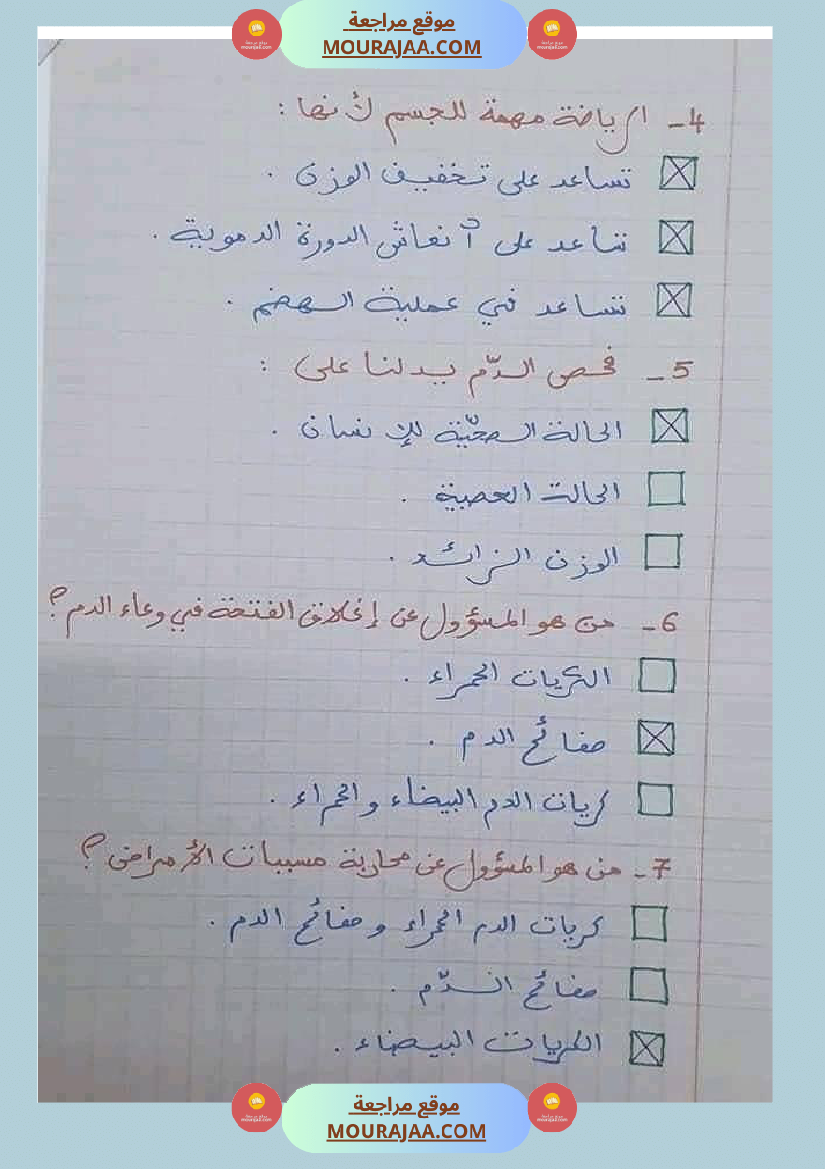 موقع مراجعة
MOURAJAA.COM
4- الرياضة مهمة للجسم لأنها :
تساعد على تخفيف الوزن .
تساعد على آنعاش الدورة الدموية .
تساعد في عملية الهضم .
5- فحص الدّم يدلنا على :
الحالة الصحيّة للإنسان .
الحالت العصبية .
الوزن الزائد .
6- من هو المسؤول عن إغلاق الفتحة في وعاء الدم ؟
الكريات الحمراء .
صفائح الدم .
كريات الدم البيضاء والحمراء .
7- من هو المسؤول عن محاربة مسببات الأمراض ؟
كريات الدم الحمراء وصفائح الدم .
صفائح الدّم .
الكريات البيضاء .
موقع مراجعة
MOURAJAA.COM